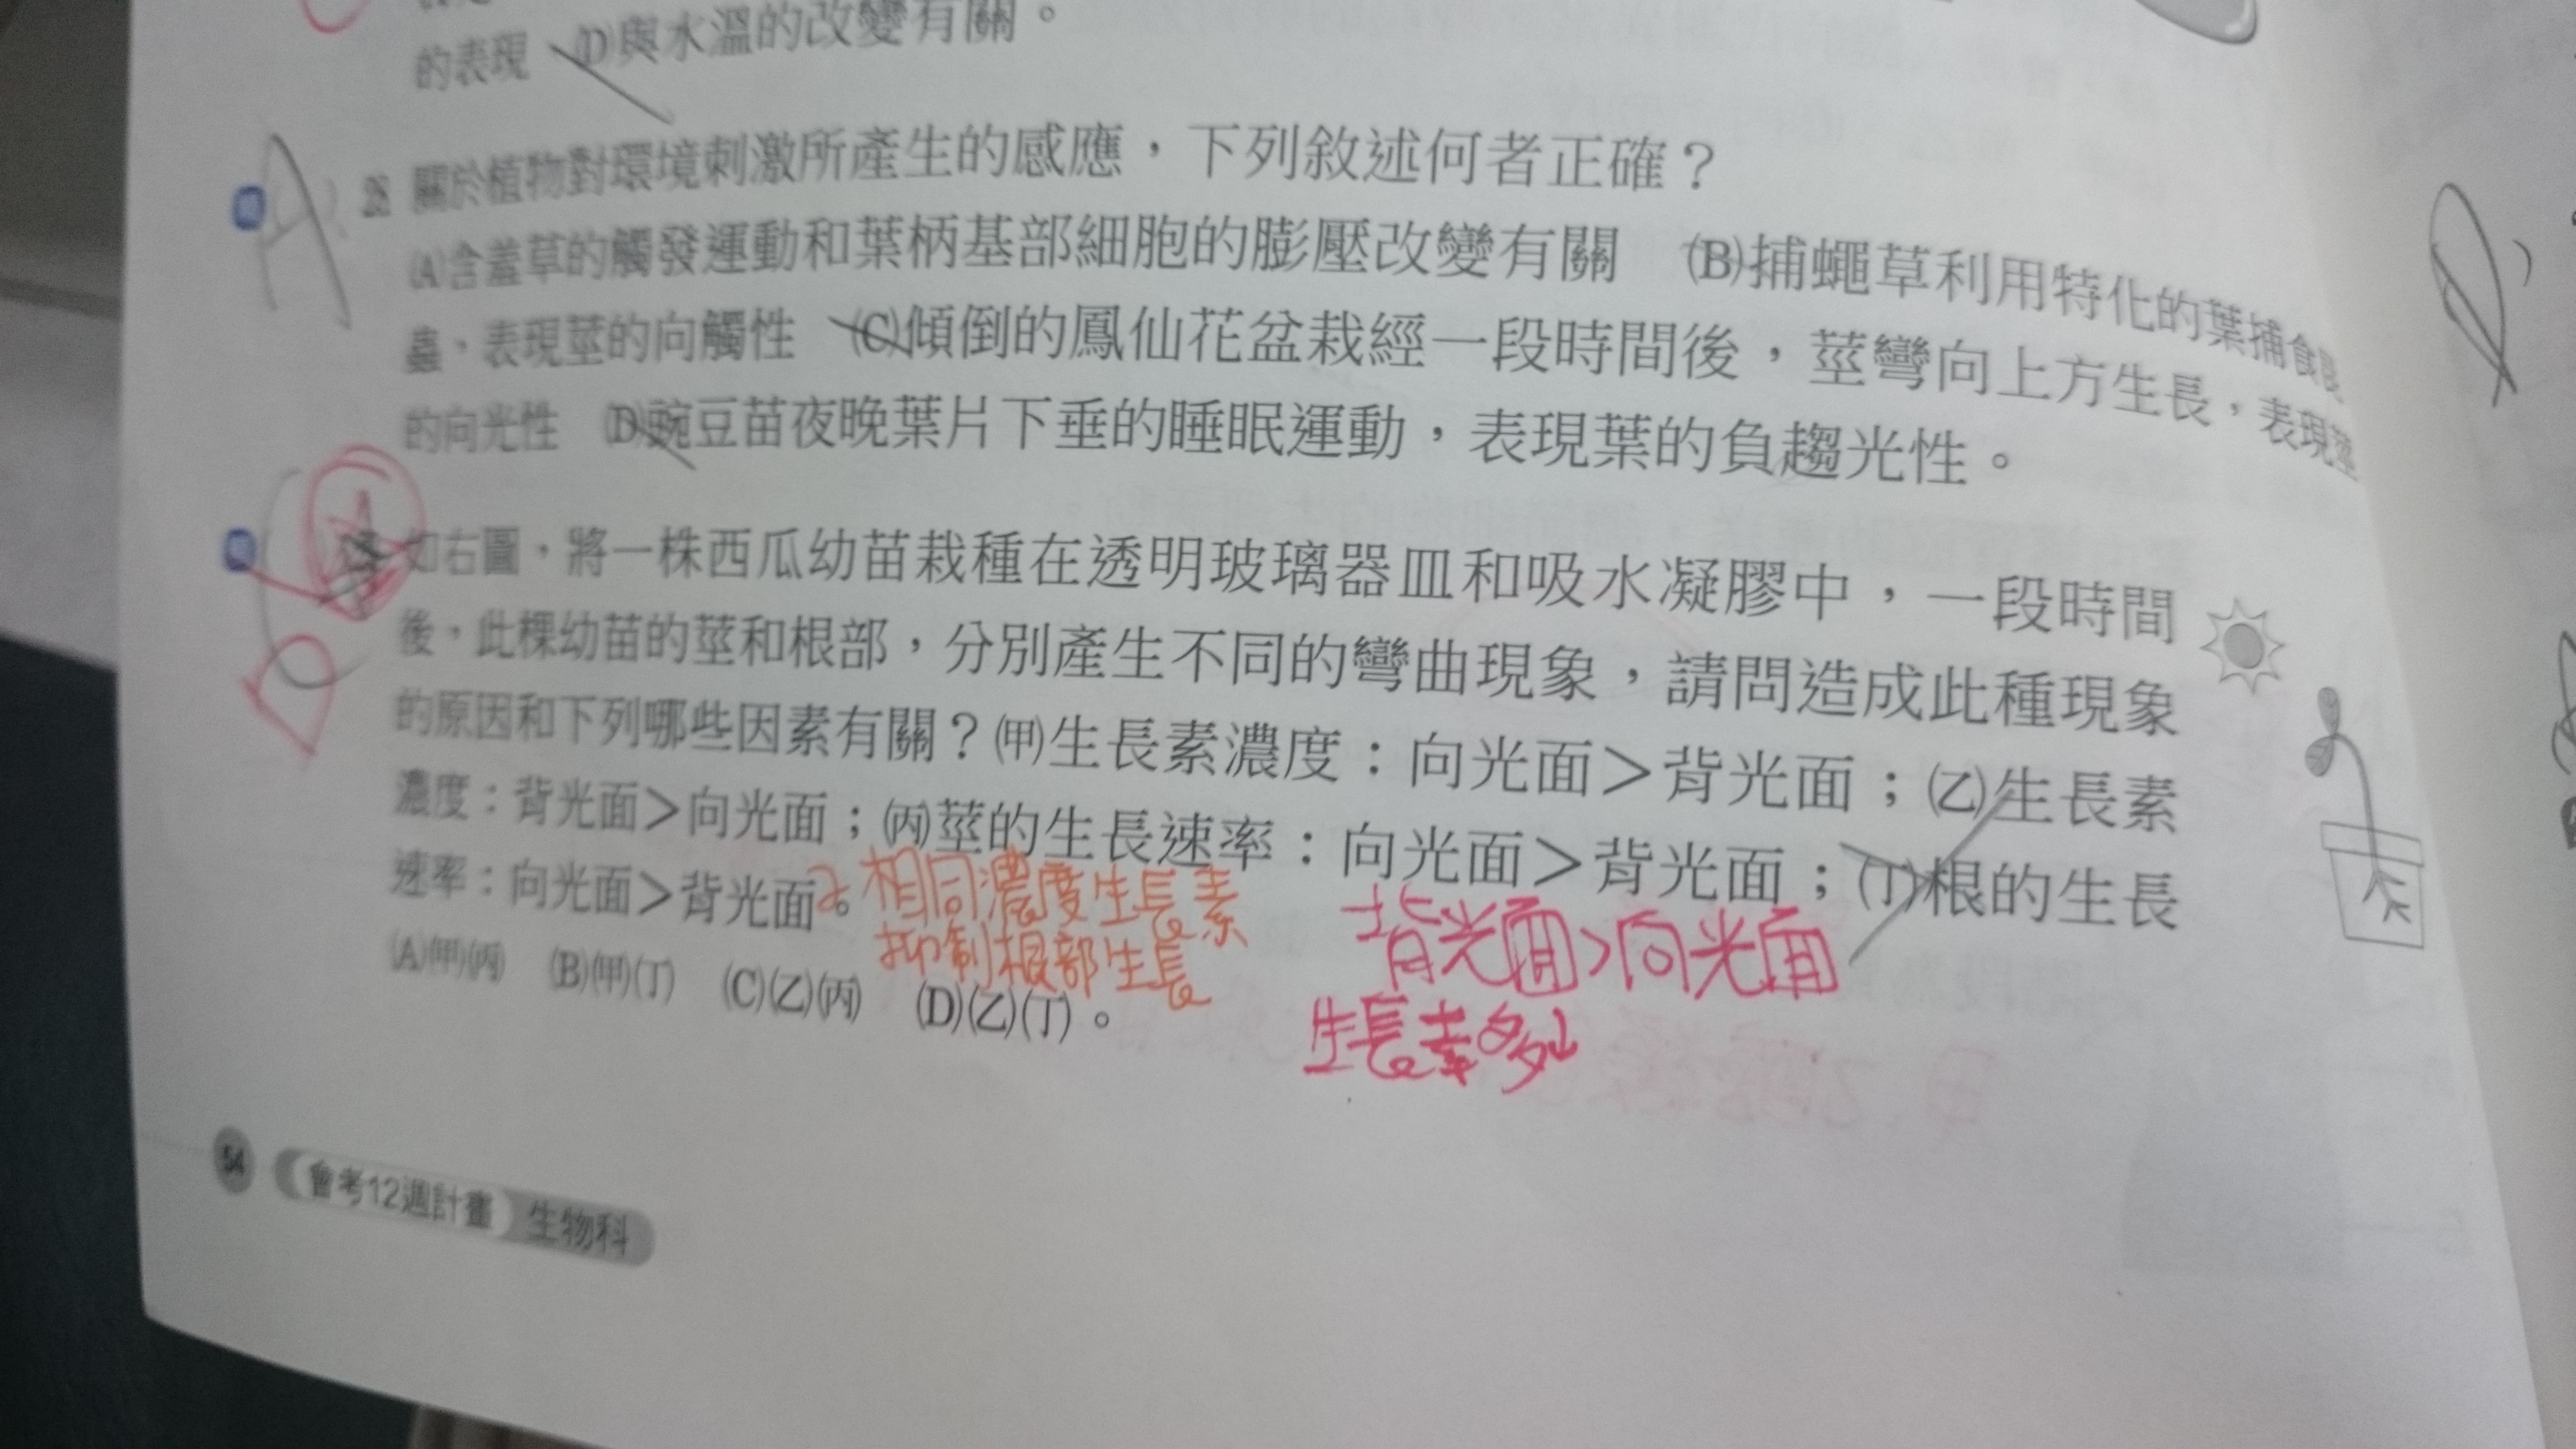 的表現 (D)與水溫的改變有關。
A
28 關於植物對環境刺激所產生的感應，下列敘述何者正確？
(A)含羞草的觸發運動和葉柄基部細胞的膨壓改變有關 (B)捕蠅草利用特化的葉捕食昆
蟲，表現莖的向觸性 (C)傾倒的鳳仙花盆栽經一段時間後，莖彎向上方生長，表現莖
的向光性 (D)豌豆苗夜晚葉片下垂的睡眠運動，表現葉的負趨光性。
如右圖，將一株西瓜幼苗栽種在透明玻璃器皿和吸水凝膠中，一段時間
後，此棵幼苗的莖和根部，分別產生不同的彎曲現象，請問造成此種現象
的原因和下列哪些因素有關？(甲)生長素濃度：向光面＞背光面；(乙)生長素
濃度：背光面＞向光面；(丙)莖的生長速率：向光面＞背光面；(丁)根的生長
速率：向光面＞背光面。
相同濃度生長素
抑制根部生長
背光面>向光面
生長素多
(A)(甲)(丙) (B)(甲)(丁) (C)(乙)(丙) (D)(乙)(丁)。
54 會考12週計畫 生物科